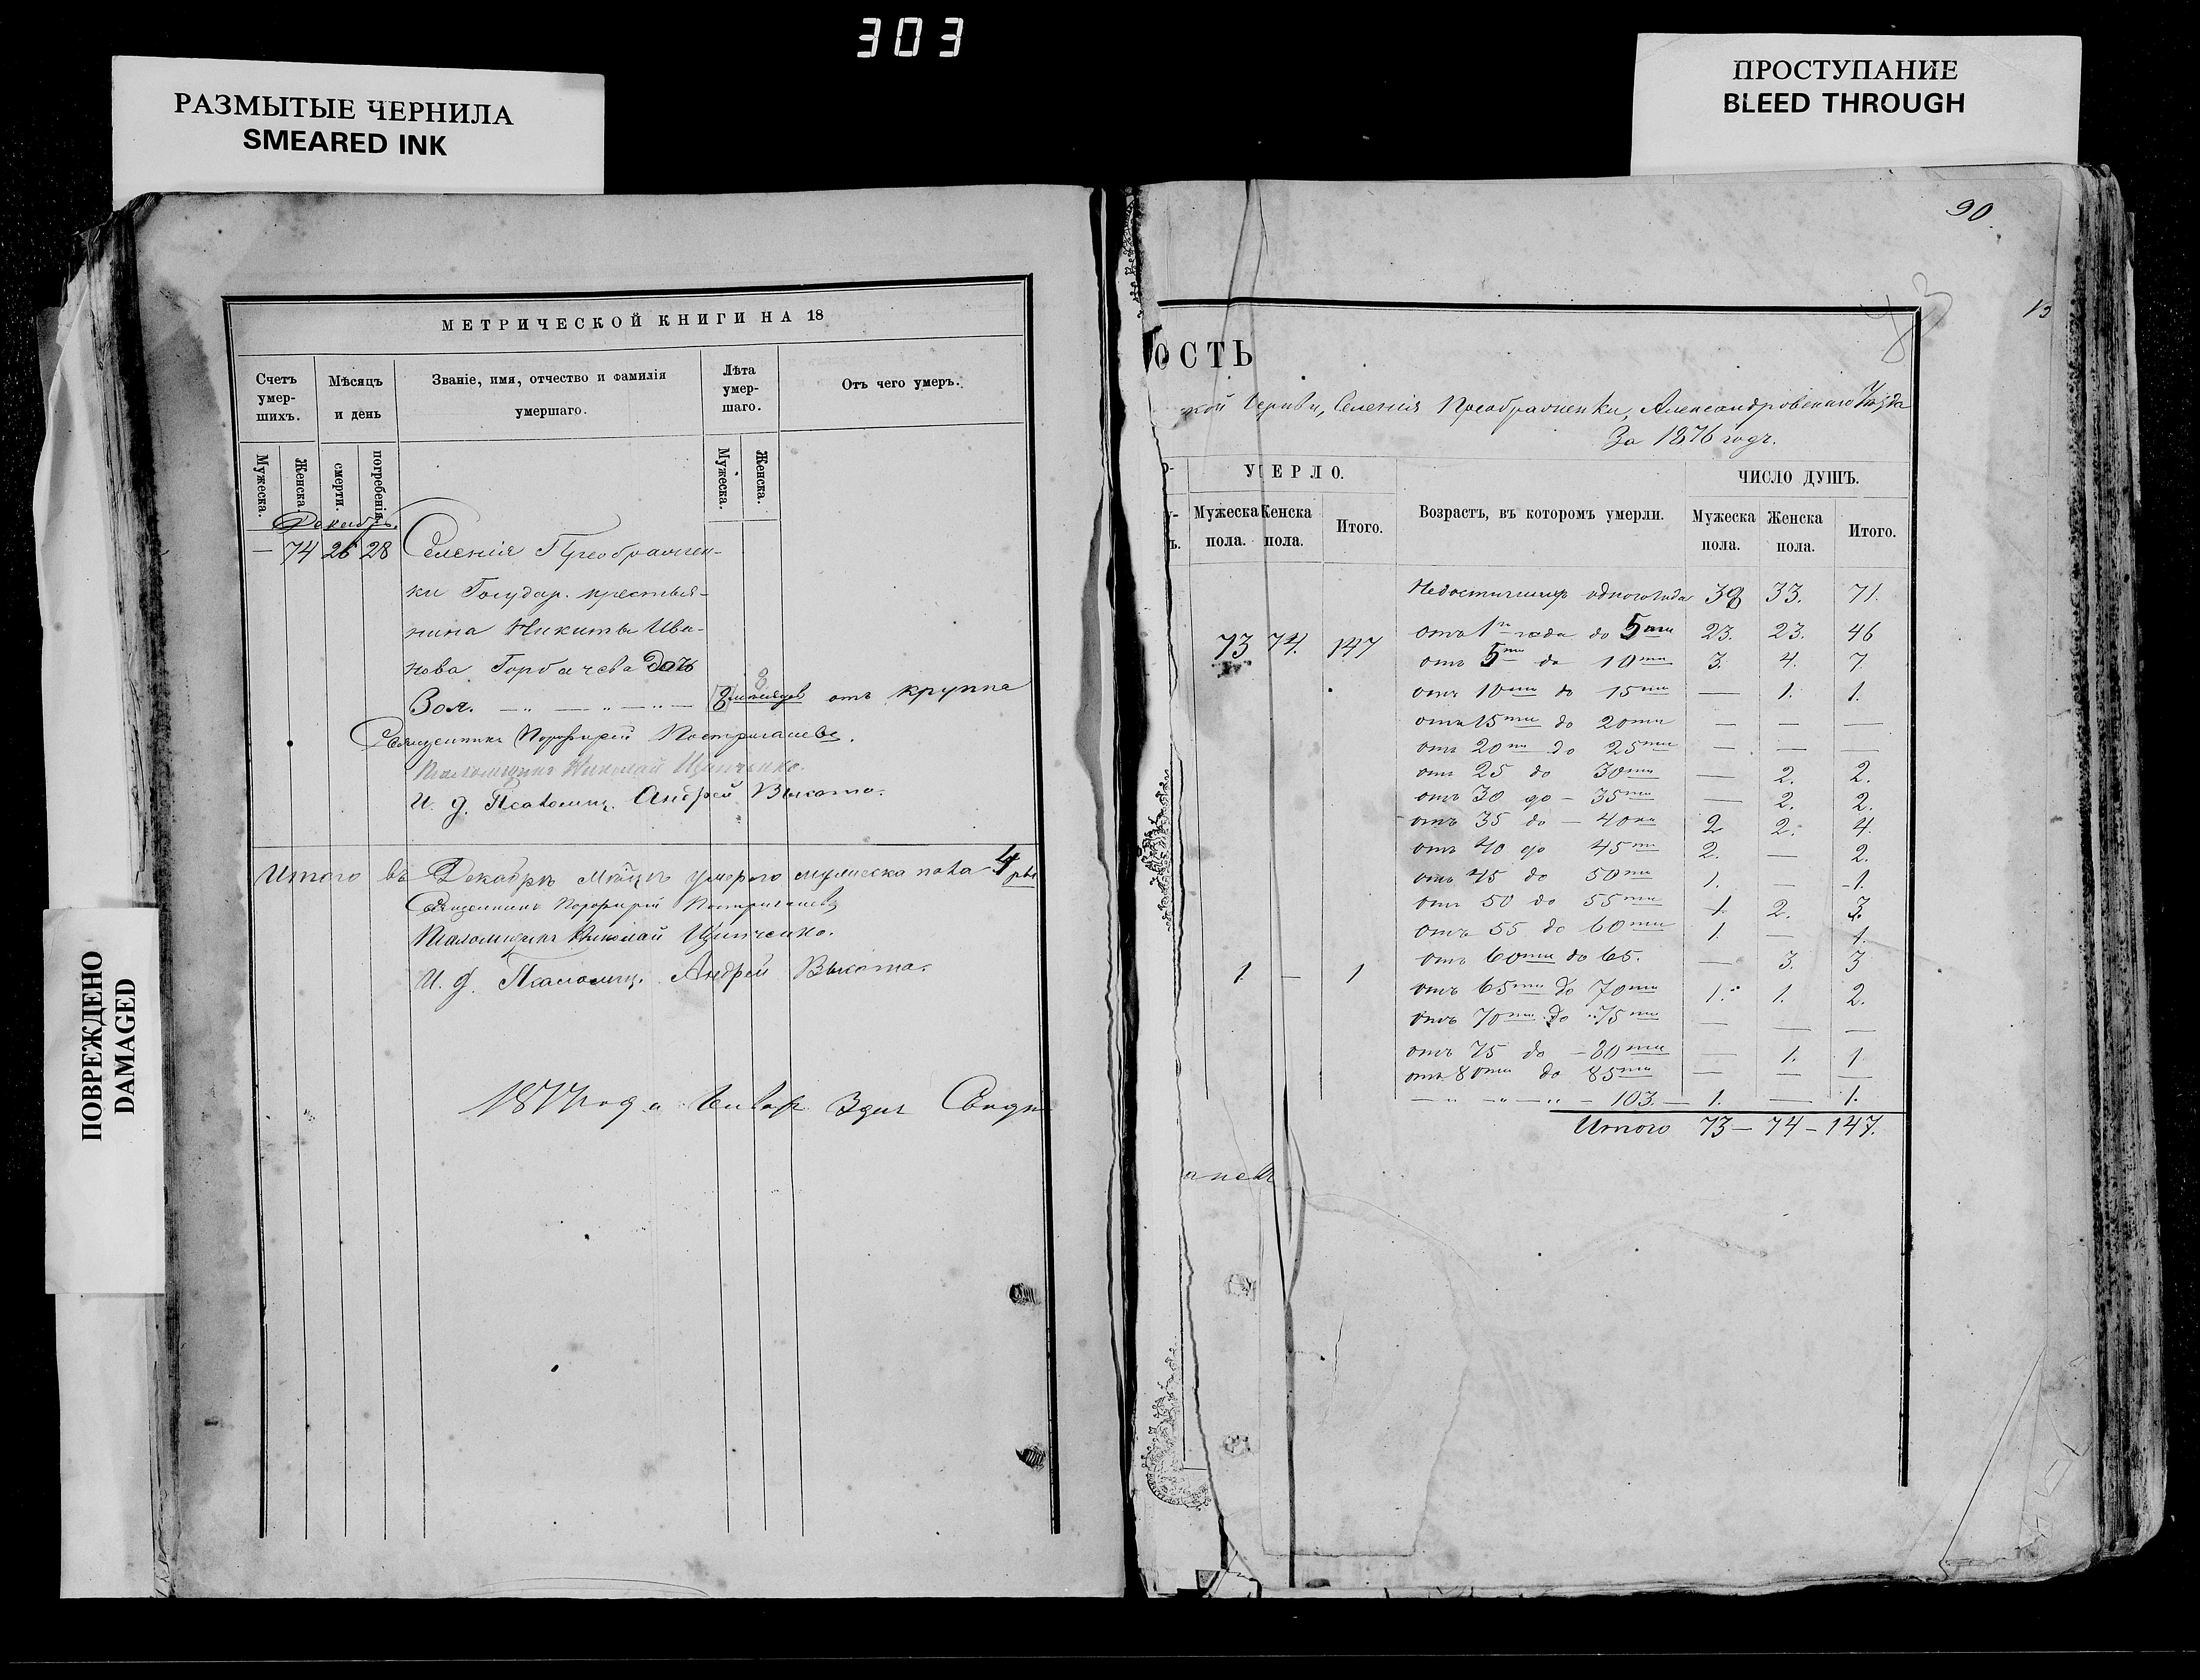 303
РАЗМЫТЫЕ ЧЕРНИЛА
SMEARED INK
ПРОСТУПАНИЕ
BLEED THROUGH
ПОВРЕЖДЕНО
DAMAGED
МЕТРИЧЕСКОЙ КНИГИ НА 18
Счетъ умер-шихъ.
Мѣсяцъ и день
Званіе, имя, отчество и фамилія умершаго.
Лѣта умер-шаго.
Отъ чего умеръ.
Мужеска. Женска. смерти. погребенія. Мужеска. Женска.
Декабрь.
— 74 26 28 Селенія Преображен-
ки Государ. крестья-
нина Никиты Ива-
нова Горбачева дочь
Зоя. 8 месяцов отъ круппа
Священникъ Порфирій
Псаломщикъ Николай
И. д. Псаломщ. Андрей Высота.
Итого въ Декабрѣ Мѣсяцѣ умерло мужеска пола 4
Священникъ Порфирій
Псаломщикъ Николай
И. д. Псаломщ. Андрей Высота.
1877 года Генвар 3 дня
90.
13
ОСТЬ
кой Церкви, Селенія Преображенки, Александровскаго Уѣзда
За 1876 годъ.
УМЕРЛО.
ЧИСЛО ДУШЪ.
Мужеска пола. Женска пола. Итого.
Возрастъ, въ которомъ умерли.
Мужеска пола. Женска пола. Итого.
Недостигшихъ одного года 38 33. 71.
73 74. 147 отъ 1го года до 5ти 23. 23. 46
отъ 5ти до 10ти 3. 4. 7.
отъ 10ти до 15ти — 1. 1.
отъ 15ти до 20ти — — —
отъ 20ти до 25ти — — —
отъ 25 до 30ти — 2. 2.
отъ 30 до — 35ти — 2. 2.
отъ 35 до — 40ка 2 2. 4.
отъ 40 до 45ти 2. — 2.
отъ 45 до 50ти 1. — 1.
отъ 50 до 55ти 1. 2. 3.
отъ 55 до 60ти 1. — 1.
отъ 60ти до 65. — 3. 3
1. — 1 отъ 65ти до 70ти 1. 1. 2.
отъ 70ти до 75ти — — —
отъ 75 до — 80ти — 1. 1
отъ 80ти до 85ти — — —
— „ — „ — „ — 103. — 1. — 1.
Итого 73 — 74 — 147.